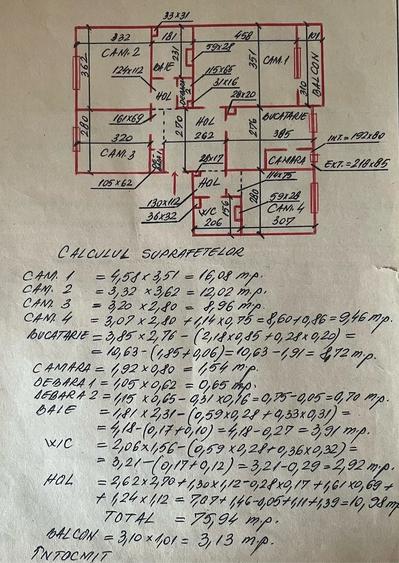 33×31
332 181 458 101
CAM. 2 BAIE 231 59×28 351 CAM. 1 BALCON
362 124×112 115×65 310
HOL DEBARA 2 31×16
28×20
161×69 HOL BUCATARIE
280 320 270 262 276 385 EXT.=192×80
CAM. 3 CAMARA
28×17 EXT.=218×85
105×62 HOL 114×75
130×112 280 59×28
36×32 W/C 156 CAM. 4
206 307
CALCULUL SUPRAFETELOR
CAM. 1 = 4,58×3,51 = 16,08 m.p.
CAM. 2 = 3,32×3,62 = 12,02 m.p.
CAM. 3 = 3,20×2,80 = 8,96 m.p.
CAM. 4 = 3,07×2,80+1,14×0,75 = 8,60+0,86 = 9,46 m.p.
BUCATARIE = 3,85×2,76-(2,18×0,85+0,28×0,20) =
= 10,63-(1,85+0,06) = 10,63-1,91 = 8,72 m.p.
CAMARA = 1,92×0,80 = 1,54 m.p.
DEBARA 1 = 1,05×0,62 = 0,65 m.p.
DEBARA 2 = 1,15×0,65-0,31×0,16 = 0,75-0,05 = 0,70 m.p.
BAIE = 1,81×2,31-(0,59×0,28+0,33×0,31) =
= 4,18-(0,17+0,10) = 4,18-0,27 = 3,91 m.p.
W/C = 2,06×1,56-(0,59×0,28+0,36×0,32) =
= 3,21-(0,17+0,12) = 3,21-0,29 = 2,92 m.p.
HOL = 2,62×2,70+1,30×1,12-0,28×0,17+1,61×0,69+
+1,24×1,12 = 7,07+1,46-0,05+1,11+1,39 = 10,98 m.p.
TOTAL = 75,94 m.p.
BALCON = 3,10×1,01 = 3,13 m.p.
INTOCMIT